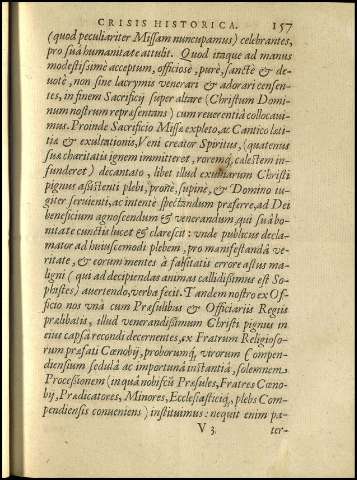 CRISIS HISTORICA. 157
(quod peculiariter Missam nuncupamus) celebrantes,
pro suâ humanitate attulit. Quod itaque ad manus
modestissimè acceptum, officiosè, purè, sanctè & de-
uotè, non sine lacrymis venerari & adorari censen-
tes, in finem Sacrificij super altare (Christum Domi-
num nostrum repræsentans) cum reuerentiâ collocaui-
mus. Proinde Sacrificio Missæ expleto, ac Cantico læti-
tiæ & exultationis, Veni creator Spiritus, (quatenus
suæ charitatis ignem immitteret, roremq́; cælestem in-
funderet) decantato, libet illud exuuiarum Christi
pignus assistenti plebi, pronè, supinè, & Domino iu-
giter seruienti, ac intentè spectandum præferre, ad Dei
beneficium agnoscendum & venerandum, qui suâ bo-
nitate cunctis lucet & clarescit: vnde publicus decla-
mator ad huiuscemodi plebem, pro manifestandâ ve-
ritate, & eorum mentes à falsitatis errore astus ma-
ligni (qui ad decipiendas animas callidissimus est So-
phistes) auertendo, verba fecit. Tandem nostro ex Of-
ficio nos vnà cum Præsulibus & Officiariis Regiis
prælibatis, illud venerandissimum Christi pignus in
eius capsâ recondi decernentes, ex Fratrum Religioso-
rum præfati Cœnobij, proborumq́; virorum Compen-
diensium sedulâ ac importunâ instantiâ, solemnem
Processionem (in quâ nobiscū Præsules, Fratres Cœno-
bij, Prædicatores, Minores, Ecclesiasticiq́; plebs Com-
pendiensis conueniens) instituimus: nequit enim pa-
V 3 ter-